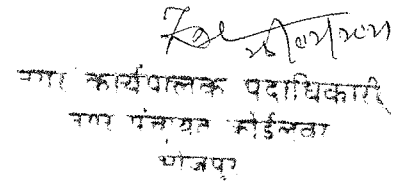 नगर कार्यपालक पदाधिकारी
नगर पंचायत कोईलवर
भोजपुर